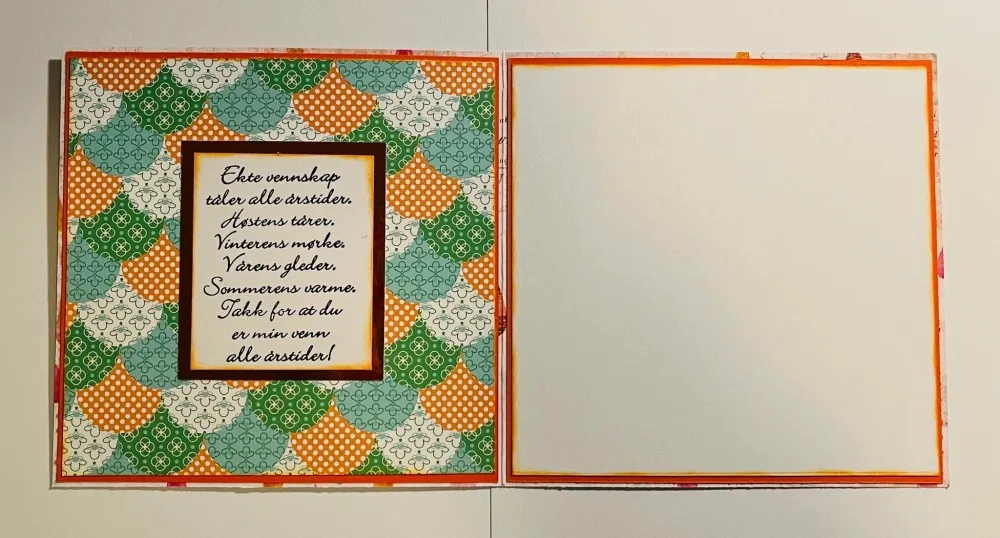 Ekte vennskap
tåler alle årstider.
Høstens tårer.
Vinterens mørke.
Vårens gleder.
Sommerens varme.
Takk for at du
er min venn
alle årstider!